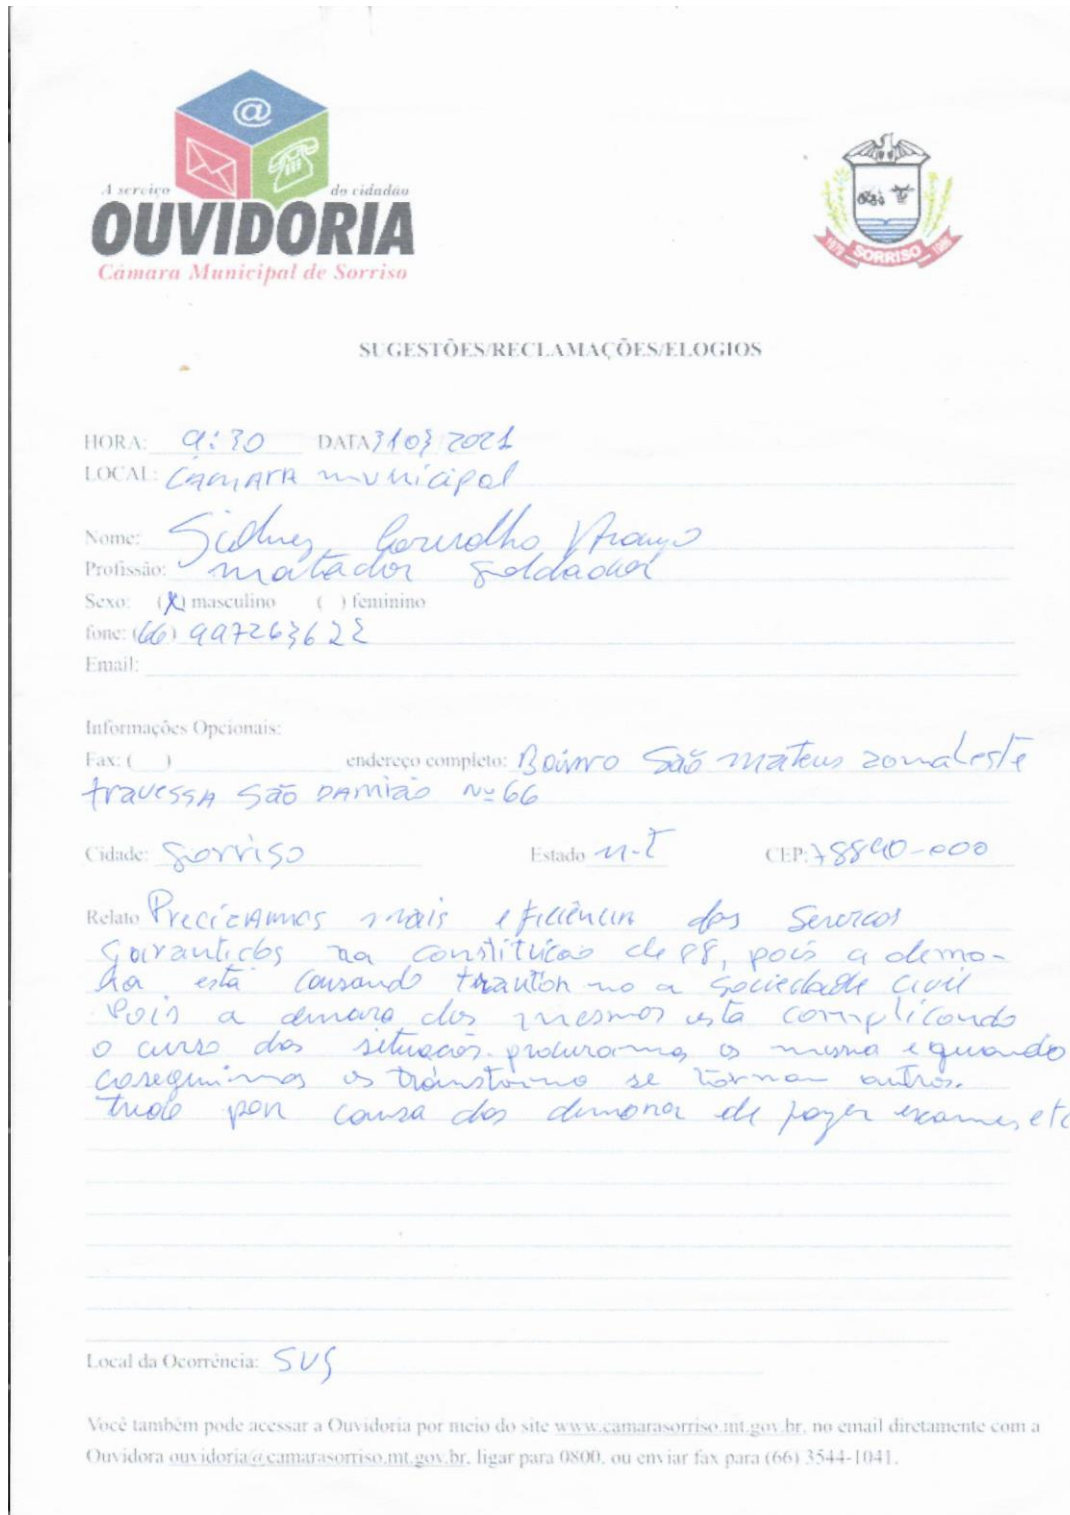 @
A serviço do cidadão
OUVIDORIA
Câmara Municipal de Sorriso
1979 SORRISO 1986
SUGESTÕES/RECLAMAÇÕES/ELOGIOS
HORA: 9:30 DATA 31 03 2021
LOCAL: CAMARA municipal
Nome: Sidney Carvalho Araujo
Profissão: montador soldador
Sexo: (X) masculino ( ) feminino
fone: (66) 997263622
Email:
Informações Opcionais:
Fax: ( ) endereço completo: Bairro São mateus zona Leste
travessA São DAmião Nº 66
Cidade: Sorriso Estado M-T CEP: 78890-000
Relato PrecizAmos mais eficiência dos Servicos
garantidos na constituicao de 88, pois a demo-
ra está causando no a Sociedade civil
Pois a demora dos mesmos esta complicando
o curso das situacos. procuramos os mesma e quando
coseguimos os tránstorno se tornam outros.
tudo por causa das demora de fazer exames, etc
Local da Ocorrência: SUS
Você também pode acessar a Ouvidoria por meio do site www.camarasorriso.mt.gov.br, no email diretamente com a
Ouvidora ouvidoria@camarasorriso.mt.gov.br, ligar para 0800, ou enviar fax para (66) 3544-1041.